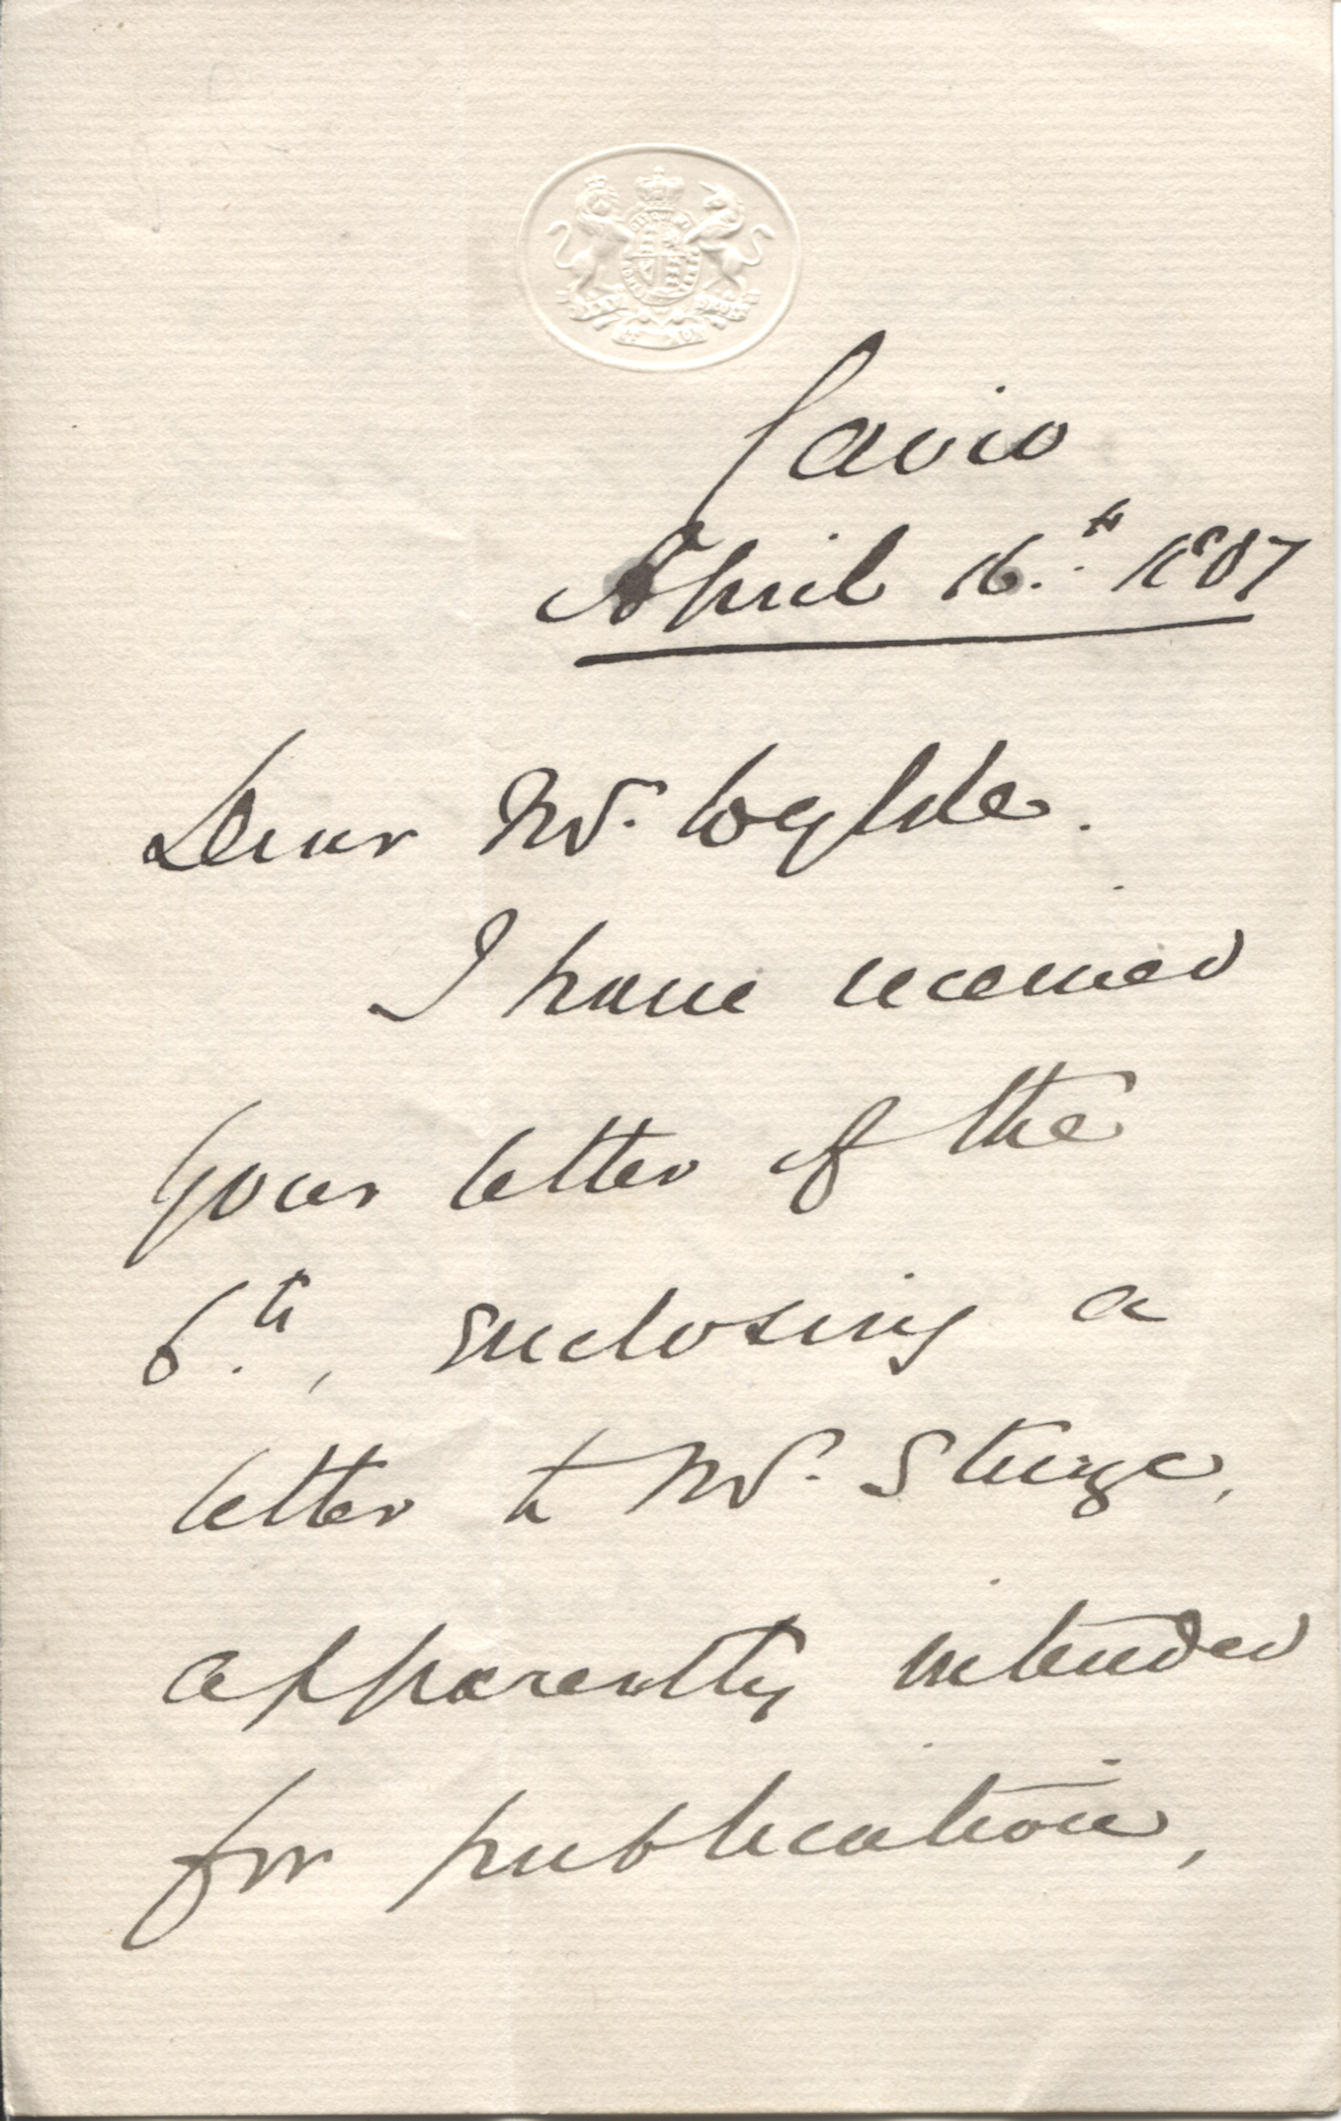 Cairo
April 16.th 1887
Dear Mr. Wylde.
I have received
your letter of the
6.th, enclosing a
letter to Mr. Sturge,
apparently intended
for publication,